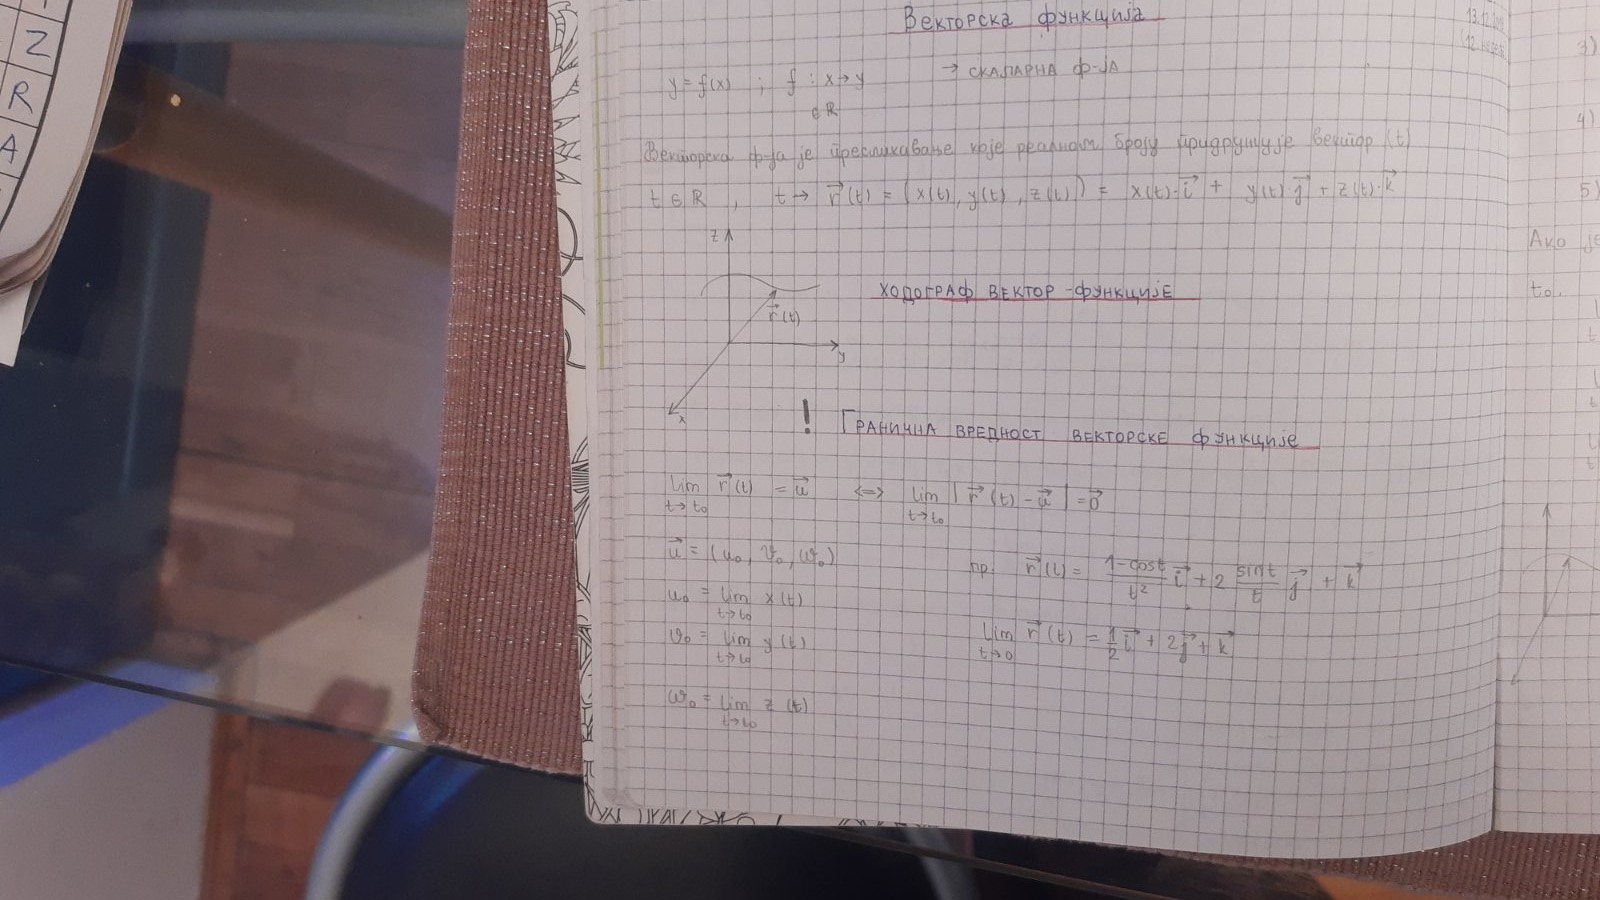 Z
R
A
Векторска функција
13.12.
y = f(x) ; f : x → y → СКАЛАРНА Ф-ЈА
∈ ℝ
Векторска ф-ја је пресликавање које реалном броју придружује вектор (t)
t ∈ ℝ , t → r⃗(t) = (x(t), y(t), z(t)) = x(t)·i⃗ + y(t) j⃗ + z(t)·k⃗
z
ХОДОГРАФ ВЕКТОР-ФУНКЦИЈЕ
r⃗(t)
y
x
! ГРАНИЧНА ВРЕДНОСТ ВЕКТОРСКЕ ФУНКЦИЈЕ
lim t→t₀ r⃗(t) = u⃗ <=> lim t→t₀ |r⃗(t) - u⃗| = 0⃗
u⃗ = (u₀, v₀, w₀)
пр. r⃗(t) = (1-cost)/t² i⃗ + 2 sint/t j⃗ + k⃗
u₀ = lim t→t₀ x(t)
v₀ = lim t→t₀ y(t)
lim t→0 r⃗(t) = 1/2 i⃗ + 2j⃗ + k⃗
w₀ = lim t→t₀ z(t)
3)
4)
5)
Ако је
t₀.